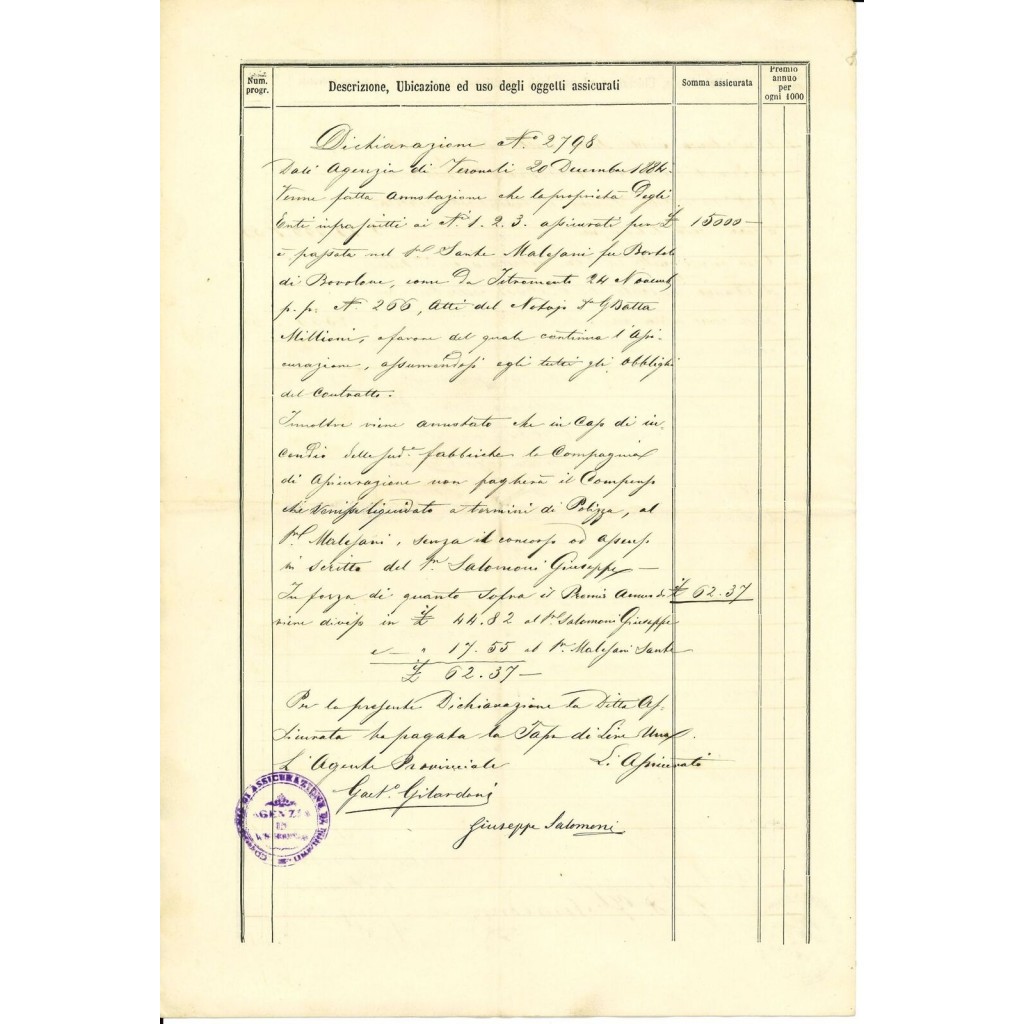 Num. progr.
Descrizione, Ubicazione ed uso degli oggetti assicurati
Somma assicurata
Premio annuo per ogni 1000
Dichiarazione N.o 2798
Dall' Agenzia di 20 Decembre 1884.
Venne fatta annotazione che la proprietà degli
Enti infrascritti ai N.i 1. 2. 3. assicurati per £ 15000—
è passata nel Sr. Sante Malesani fu Bortolo
di Bovolone, come da Istromento 24 Novemb.
p.p. N.o 266, Atti del Notajo Dr GBatta
Millioni, a favore del quale continua l'Assi-
curazione, assumendosi egli tutti gli obblighi
del contratto.
Innoltre viene annotato che in Caso di in-
cendio delle sud.e fabbriche la Compagnia
di Assicurazione non pagherà il Compenso
che venisse liquidato a termini di Polizza, al
Sr. Malesani, senza il concorso od assenso
in scritto del Sr. Salomoni Giuseppe —
In forza di quanto sopra il Premio Annuo di £ 62.37
viene diviso in £ 44.82 al Sr. Salomoni Giuseppe
e — " 17.55 al Sr. Malesani Sante
£ 62.37 —
Per la presente Dichiarazione la Ditta As-
sicurata ha pagata la Tassa di Lire Una.
L'Agente Provinciale
Li Assicurato
Gaet.o Gilardoni
Giuseppe Salomoni
DI ASSICURAZIONE DI
AGENZIA
IN